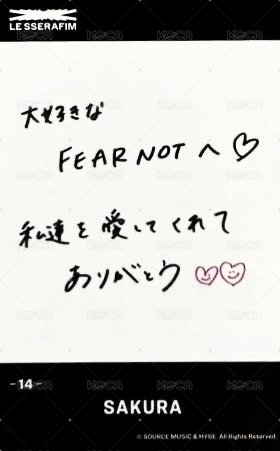 LE SSERAFIM
大好きな
FEARNOT へ ♡
私達を愛してくれて
ありがとう ♡♡
-14-
SAKURA
© SOURCE MUSIC & HYBE. All Rights Reserved.